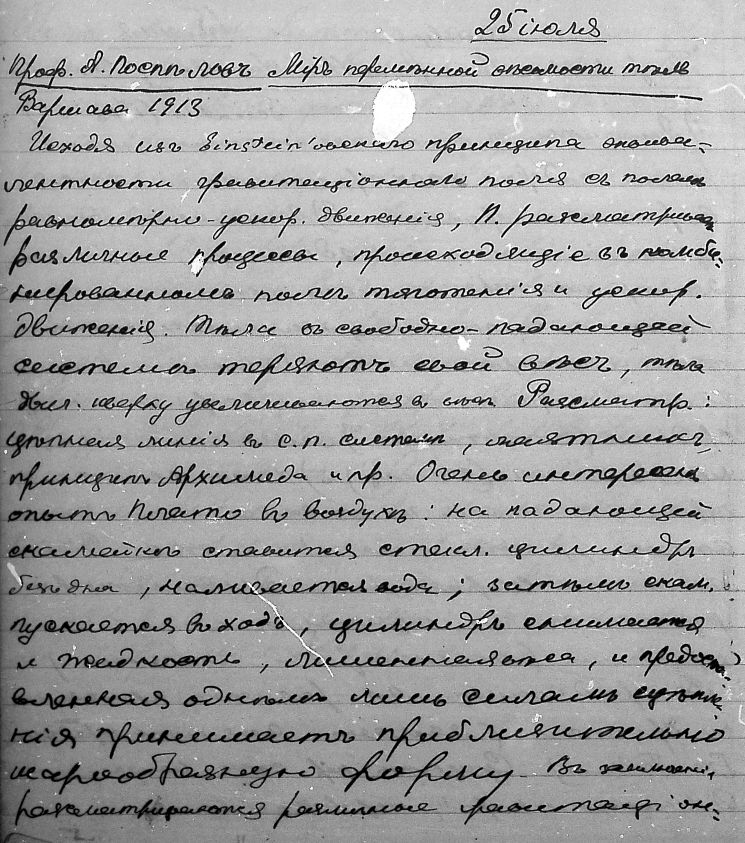 25 іюля
Проф. А. Поспѣловъ Міръ перемѣнной вѣсомости тѣлъ
Варшава 1913
Исходя изъ Einstein'овскаго принципа эквива-
лентности гравитаціоннаго поля съ полемъ
равномѣрно-ускор. движенія, П. разсматриваетъ
различные процессы, происходящіе въ комби-
нированномъ полѣ тяготенія и ускор.
движенія. Тѣла въ свободно-падающей
системѣ теряютъ свой вѣсъ, тѣла
движ. кверху увеличиваются в вѣсѣ. Разсматр.:
цѣпная линія в с.п. системѣ, маятникъ,
принципъ Архимеда и пр. Очень интересенъ
опытъ Плато въ воздухѣ: на падающей
скамейкѣ ставится стекл. цилиндръ
безъ дна, наливается вода; затѣмъ скам.
пускается въ ходъ, цилиндръ снимается
и жидкость, лишенная вѣса, и предоста-
вленная однѣмъ лишь силамъ сцѣпле-
нія принимаетъ приблизительно
шарообразную форму. Въ
разсматриваются различные гравитаціон-